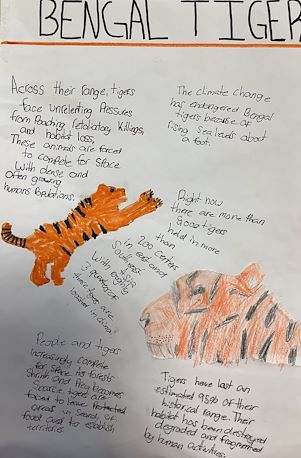 BENGAL TIGER
Across their range, tigers
face unrelenting pressures
from Poaching, retaliatory killings,
and habitat loss,
These animals are forced
to compete for space
With dense and
often growing
humans Populations.
The climate change
has endangered Bengal
tigers because of
rising sea levels about
a foot.
Right now
there are more than
8000 tigers
held in more
than
200 centers
in east and
Southeast
Asia
With roughly
of
these tigers are
located in china
People and tigers
increasingly compete
for space. As forests
Shrink and Prey becomes
Scarce tigers are
forced to leave
areas in search of
food and to establish
territories
Tigers have lost an
estimated 95% of their
historical range. Their
habitat has been destroyed
degraded and fragmented
by human activities.